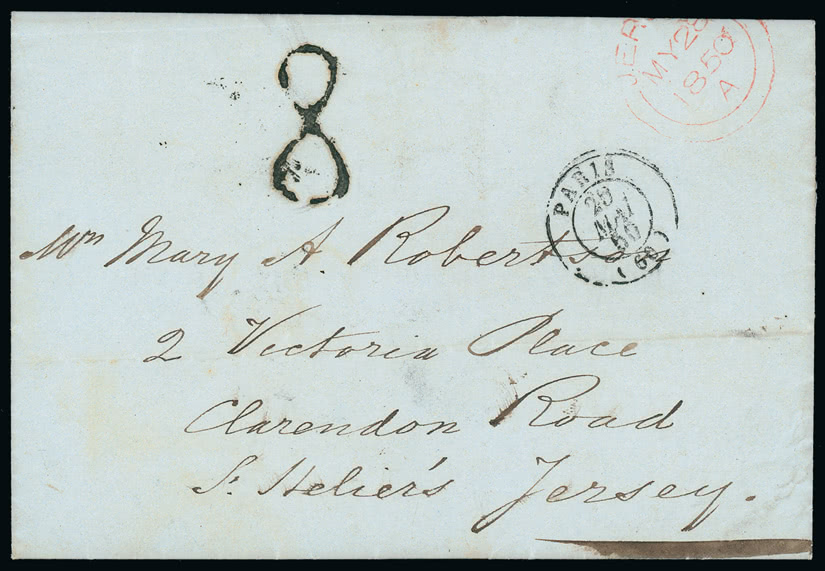 8
JER
MY 28
1850
A
PARIS
28
MAI
50
(60)
Mrs Mary A. Robertson
2 Victoria Place
Clarendon Road
St. Helier's Jersey.